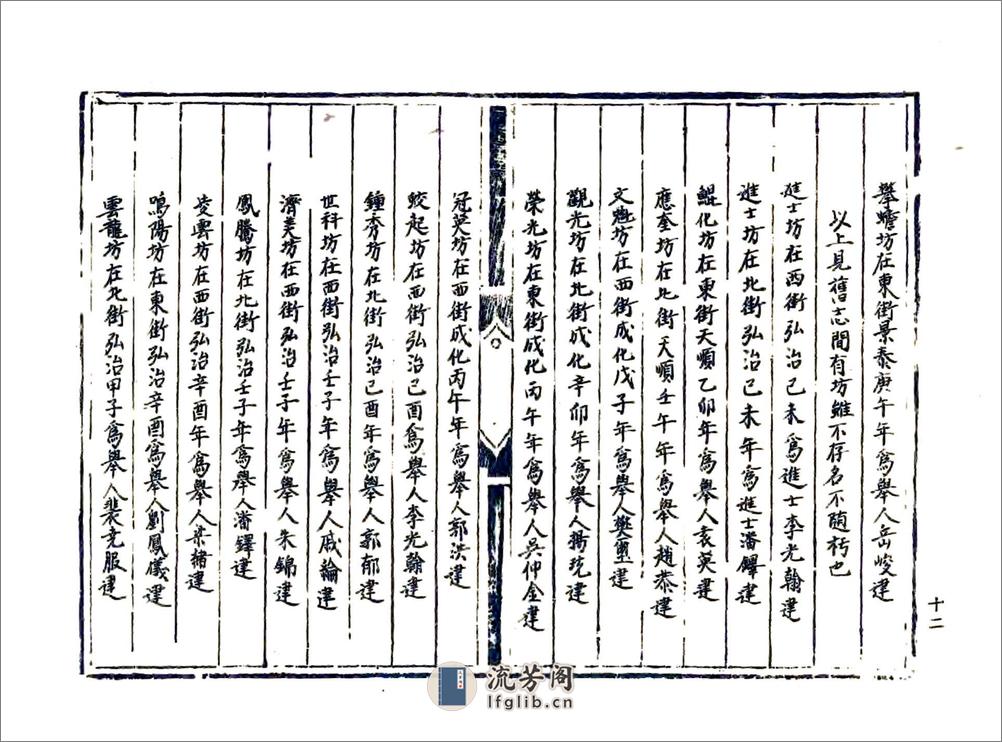 攀蟾坊在東街景泰庚午年爲舉人岳峻建
以上見舊志間有坊雖不存名不隨朽也
進士坊在西街弘治己未爲進士李光翰建
進士坊在北街弘治己未年爲進士潘鐸建
鯤化坊在東街天順乙卯年爲舉人袁英建
應奎坊在北街天順壬午年爲舉人趙恭建
文魁坊在西街成化戊子年爲舉人樊建
觀光坊在北街成化辛卯年爲舉人楊建
榮光坊在東街成化丙午年爲舉人吳仲金建
冠英坊在西街成化丙午年爲舉人郭洪建
蛟起坊在西街弘治己酉爲舉人李光翰建
鍾秀坊在北街弘治己酉年爲舉人郭郁建
世科坊在西街弘治壬子年爲舉人戚論建
濟美坊在西街弘治壬子年爲舉人朱錦建
鳳騰坊在北街弘治壬子年爲舉人潘鐸建
凌雲坊在西街弘治辛酉年爲舉人梁緒建
鳴陽坊在東街弘治辛酉爲舉人劉鳳儀建
雲龍坊在北街弘治甲子爲舉人裴服建
十二
流芳阁
lfglib.cn